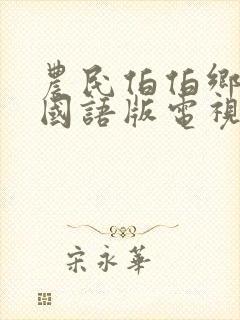 農民伯伯鄉
國語版電視
宋永華